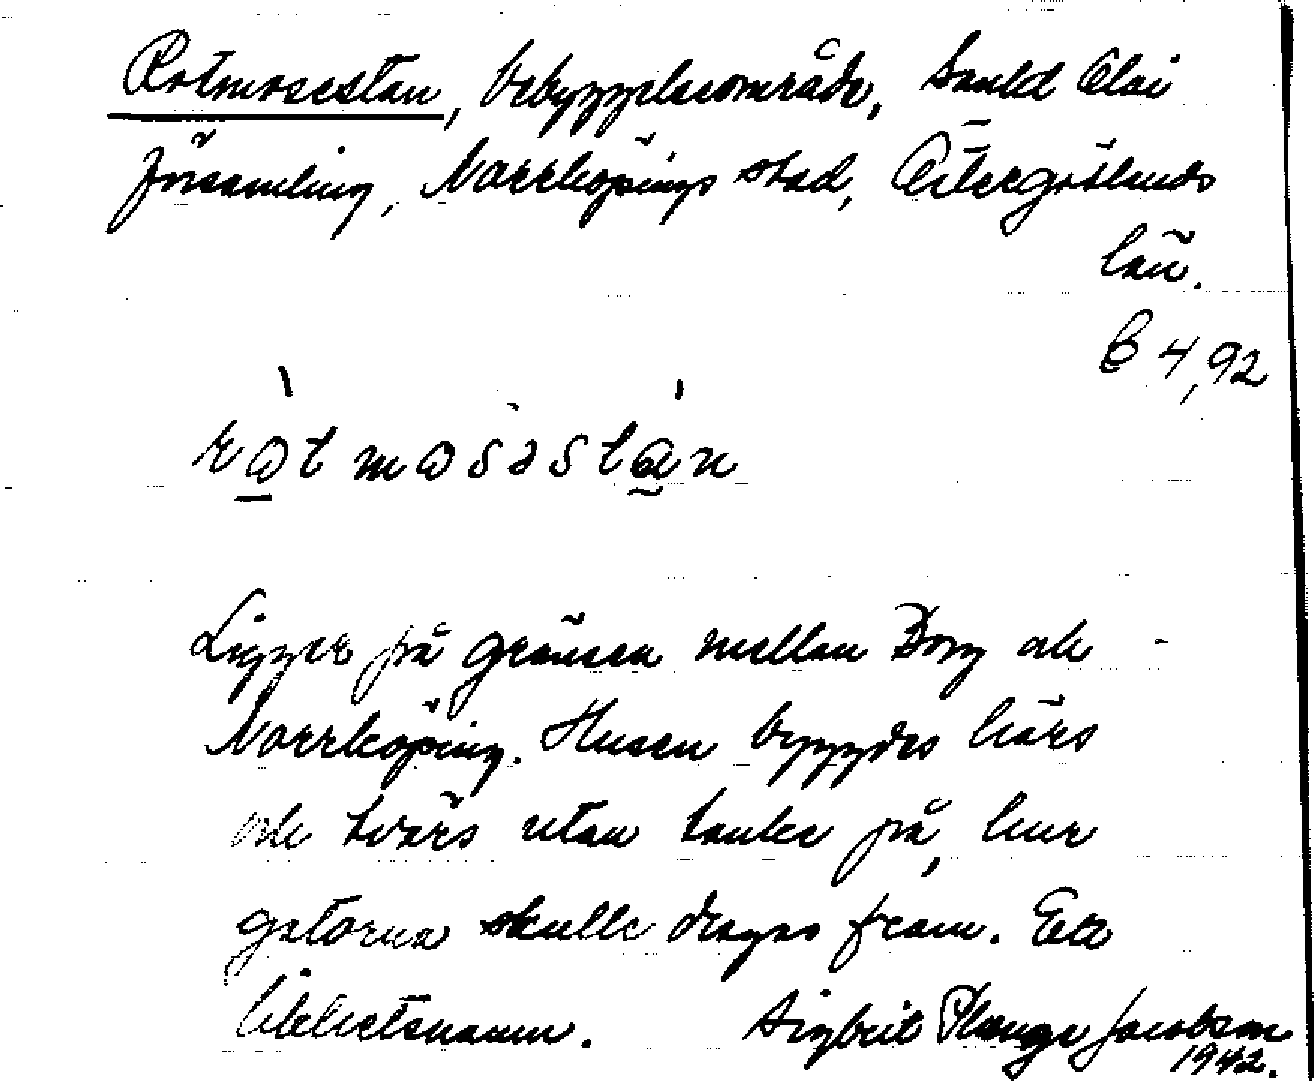 Rotmosestan, bebyggelseområde, Sankt Olai
församling, Norrköpings stad, Östergötlands
län.
B 4,92
Ligger på gränsen mellan Borg och
Norrköping. Husen byggdes härs
och tvärs utan tanke på, hur
gatorna skulle dragas fram. Ett
öknamn.
Sigbrit Plænge Jacobson
1942.